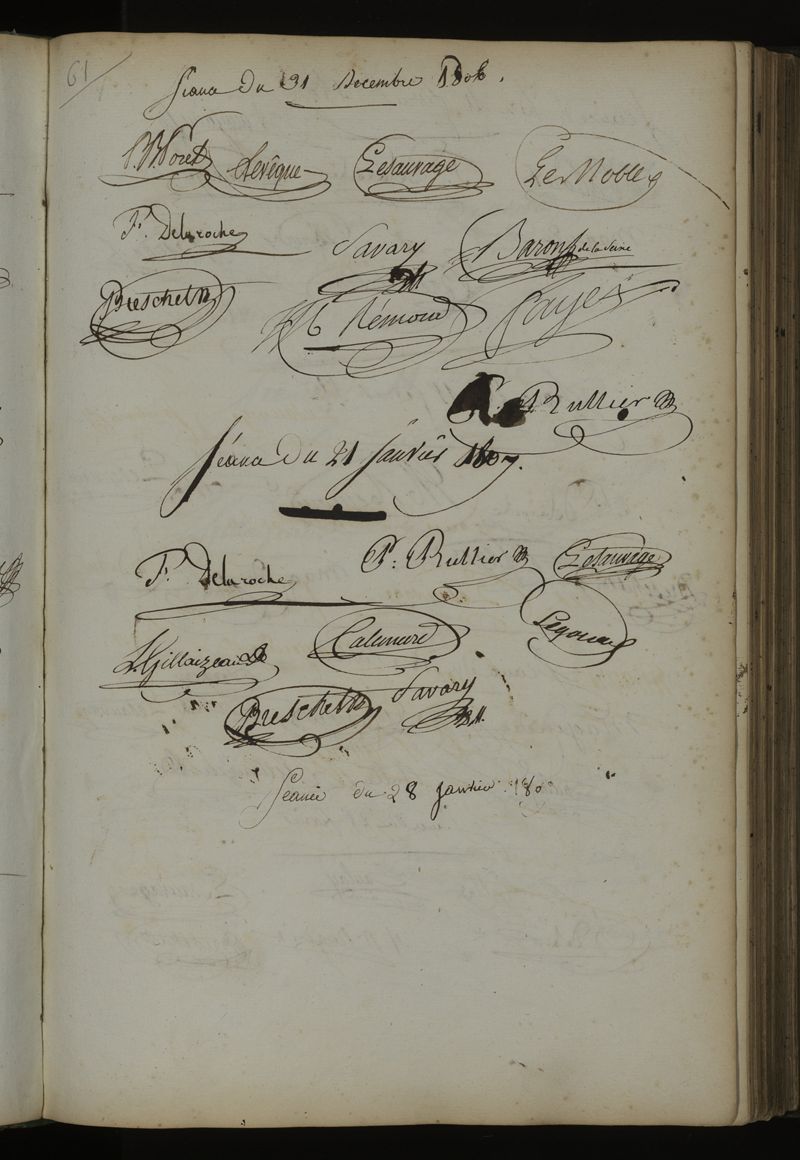 61
Séance Du 31 Decembre 1806.
Moret Levêque Lesauvage Le Noble
F. Delaroche Savary Baron de la Seine
Breschet Remond Payer
P. Rullier
Séance Du 21 Janvier 1807.
F. Delaroche P. Rullier Lesauvage
Gillaizeau Calamard Legouais
Breschet Savary
Séance du 28 janvier 180